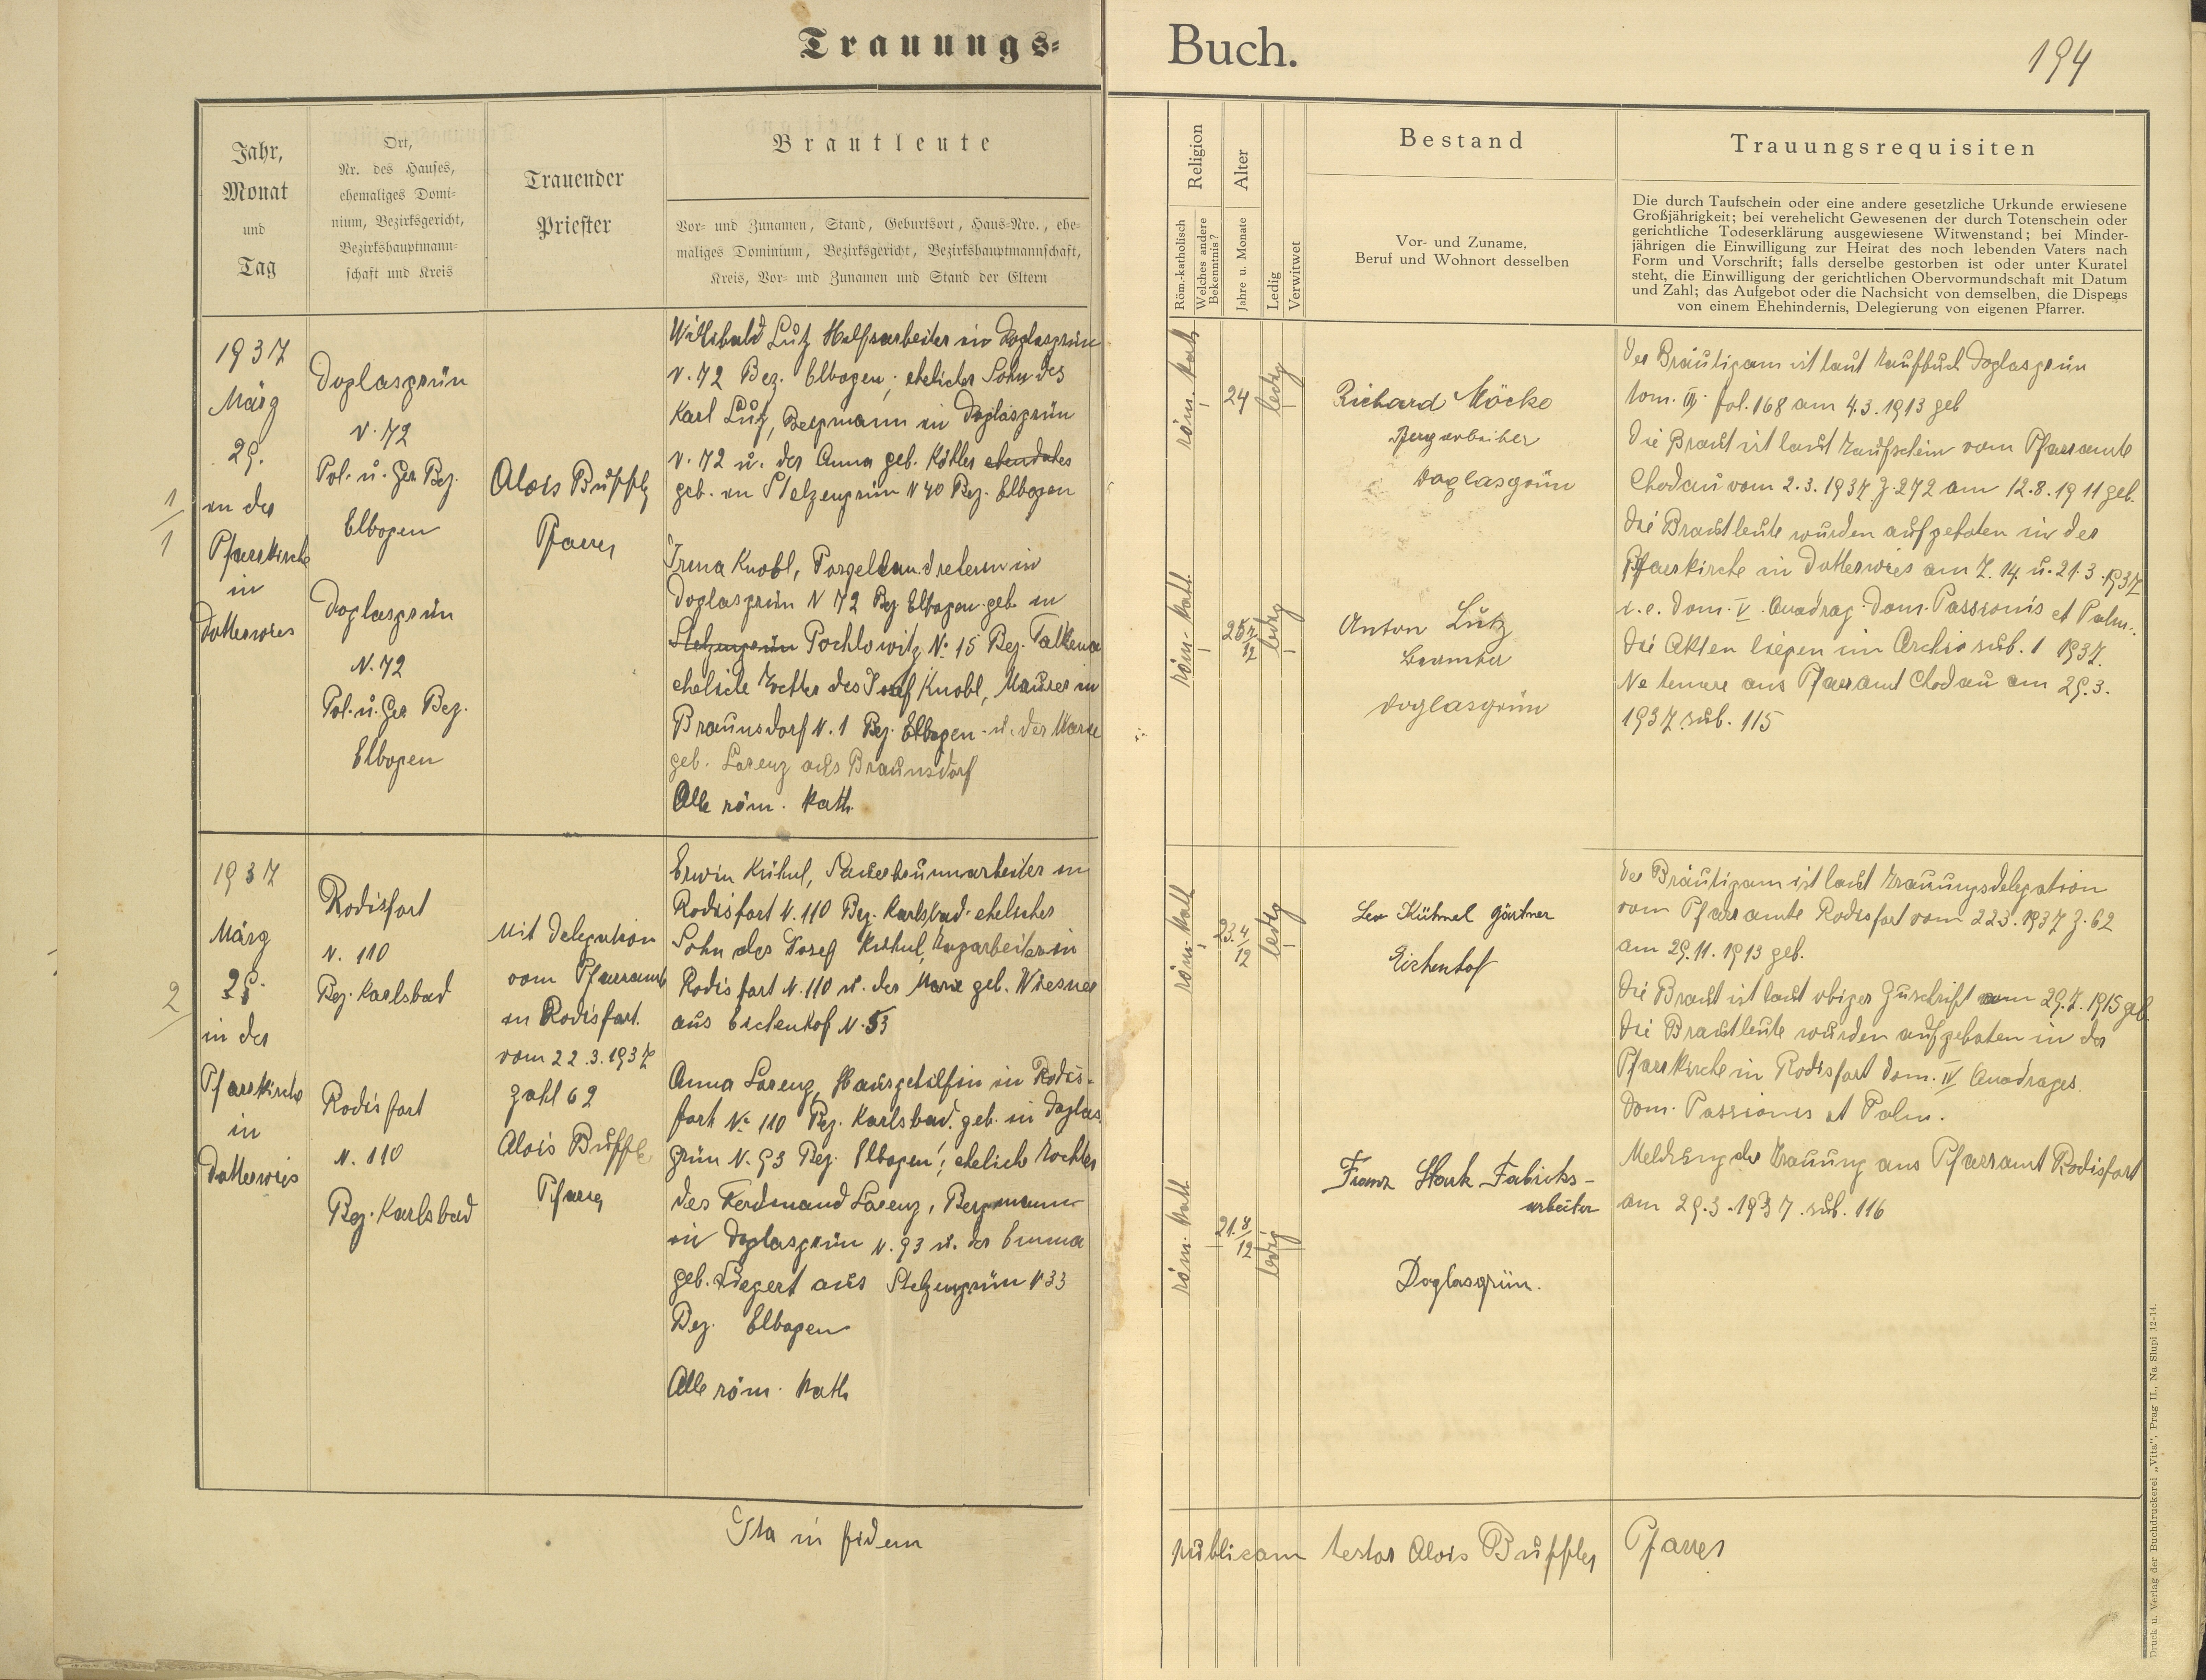 Trauungs-
Buch.
194
Jahr,
Monat
und
Tag
Ort,
Nr. des Hauses,
ehemaliges Domi-
nium, Bezirksgericht,
Bezirkshauptmann-
schaft und Kreis
Trauender
Priester
Brautleute
Vor- und Zunamen, Stand, Geburtsort, Haus-Nro., ehe-
maliges Dominium, Bezirksgericht, Bezirkshauptmannschaft,
Kreis, Vor- und Zunamen und Stand der Eltern
Religion
Röm.-katholisch
Welches andere
Bekenntnis?
Alter
Jahre u. Monate
Ledig
Verwitwet
Bestand
Vor- und Zuname,
Beruf und Wohnort desselben
Trauungsrequisiten
Die durch Taufschein oder eine andere gesetzliche Urkunde erwiesene
Großjährigkeit; bei verehelicht Gewesenen der durch Totenschein oder
gerichtliche Todeserklärung ausgewiesene Witwenstand; bei Minder-
jährigen die Einwilligung zur Heirat des noch lebenden Vaters nach
Form und Vorschrift; falls derselbe gestorben ist oder unter Kuratel
steht, die Einwilligung der gerichtlichen Obervormundschaft mit Datum
und Zahl; das Aufgebot oder die Nachsicht von demselben, die Dispens
von einem Ehehindernis, Delegierung von eigenen Pfarrer.
1/1
1937
März
29.
in der
Pfarrkirche
in
Dotterwies
Doglasgrün
N. 72
Pol. u. Ger Bez.
Elbogen
Doglasgrün
N. 72
Pol. u. Ger Bez.
Elbogen
Alois Buffly
Pfarrer
Willibald Lutz Hilfsarbeiter in Doglasgrün
N. 72 Bez. Elbogen; ehelicher Sohn des
Karl Lutz, Bergmann in Doglasgrün
N. 72 u. der Anna geb. Köhler
geb. in Stelzengrün N 40 Bez. Elbogen
Irma Knobl, Porzellandreherin in
Doglasgrün N 72 Bez Elbogen geb. in
Stelzengrün Pochlowitz No 15 Bez. Falkenau
eheliche Tochter des Josef Knobl, Maurer in
Braunsdorf N. 1 Bez. Elbogen u. der Marie
geb. Lorenz aus Braunsdorf
Alle röm. kath.
röm. kath
24
ledig
röm. kath
25 7/12
ledig
Richard Möcke
Bergarbeiter
Doglasgrün
Anton Lutz
Beamter
Doglasgrün
Der Bräutigam ist laut Taufbuch Doglasgrün
tom. III. fol. 168 am 4.3.1913 geb
Die Braut ist laut Taufschein vom Pfarramte
Chodau vom 2.3.1937 Z. 272 am 12.8.1911 geb.
Die Brautleute wurden aufgeboten in der
Pfarrkirche in Dotterwies am 7. 14. u. 21.3.1937
i. e. Dom. IV. Quadrag. Dom. Passionis et Palm.
Die Akten liegen im Archiv sub. 1 1937.
Ne temere ans Pfarramt Chodau am 29.3.
1937 sub. 115
2/
1937
März
29.
in der
Pfarrkirche
in
Dotterwies
Rodisfort
N. 110
Bez. Karlsbad
Rodisfort
N. 110
Bez. Karlsbad
Mit Delegation
vom Pfarramt
in Rodisfort
vom 22.3.1937
Zahl 62
Alois Buffly
Pfarrer
Erwin Kühnl, Sauerbrunnarbeiter in
Rodisfort N. 110 Bez. Karlsbad ehelicher
Sohn des Josef Kühnl, in
Rodisfort N. 110 u. der Marie geb. Wiesner
aus Eichenhof N. 53
Anna Lorenz, Hausgehilfin in Rodis-
fort No 110 Bez. Karlsbad. geb. in Doglas-
grün N. 93 Bez. Elbogen; eheliche Tochter
des Ferdinand Lorenz, Bergmann
in Doglasgrün N. 93 u. der Emma
geb. aus Stelzengrün N 33
Bez. Elbogen
Alle röm. kath
röm. kath
23. 4/12
ledig
röm. kath
21. 8/12
ledig
Leo Kühnel Gärtner
Eichenhof
Franz Stark Fabriks-
arbeiter
Doglasgrün.
Der Bräutigam ist laut Trauungsdelegation
vom Pfarramte Rodisfort vom 22.3.1937 Z. 62
am 29.11.1913 geb.
Die Braut ist laut obiger Zuschrift am 29.7.1915 geb.
Die Brautleute wurden aufgeboten in der
Pfarrkirche in Rodisfort Dom. IV Quadrages.
Dom. Passionis et Palm.
Meldung der Trauung ans Pfarramt Rodisfort
am 29.3.1937. sub. 116
Ita in fidem
publicam testor Alois Buffly Pfarrer
Druck u. Verlag der Buchdruckerei „Vita", Prag II., Na Slupi 12-14.